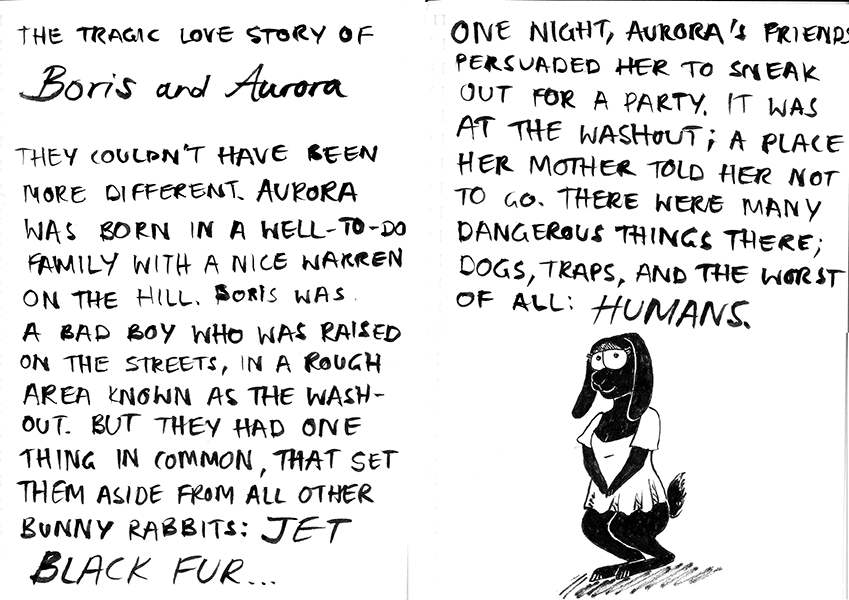 THE TRAGIC LOVE STORY OF
Boris and Aurora
THEY COULDN'T HAVE BEEN
MORE DIFFERENT. AURORA
WAS BORN IN A WELL-TO-DO
FAMILY WITH A NICE WARREN
ON THE HILL. BORIS WAS
A BAD BOY WHO WAS RAISED
ON THE STREETS, IN A ROUGH
AREA KNOWN AS THE WASH-
OUT. BUT THEY HAD ONE
THING IN COMMON, THAT SET
THEM ASIDE FROM ALL OTHER
BUNNY RABBITS: JET
BLACK FUR...
ONE NIGHT, AURORA'S FRIENDS
PERSUADED HER TO SNEAK
OUT FOR A PARTY. IT WAS
AT THE WASHOUT; A PLACE
HER MOTHER TOLD HER NOT
TO GO. THERE WERE MANY
DANGEROUS THINGS THERE;
DOGS, TRAPS, AND THE WORST
OF ALL: HUMANS.